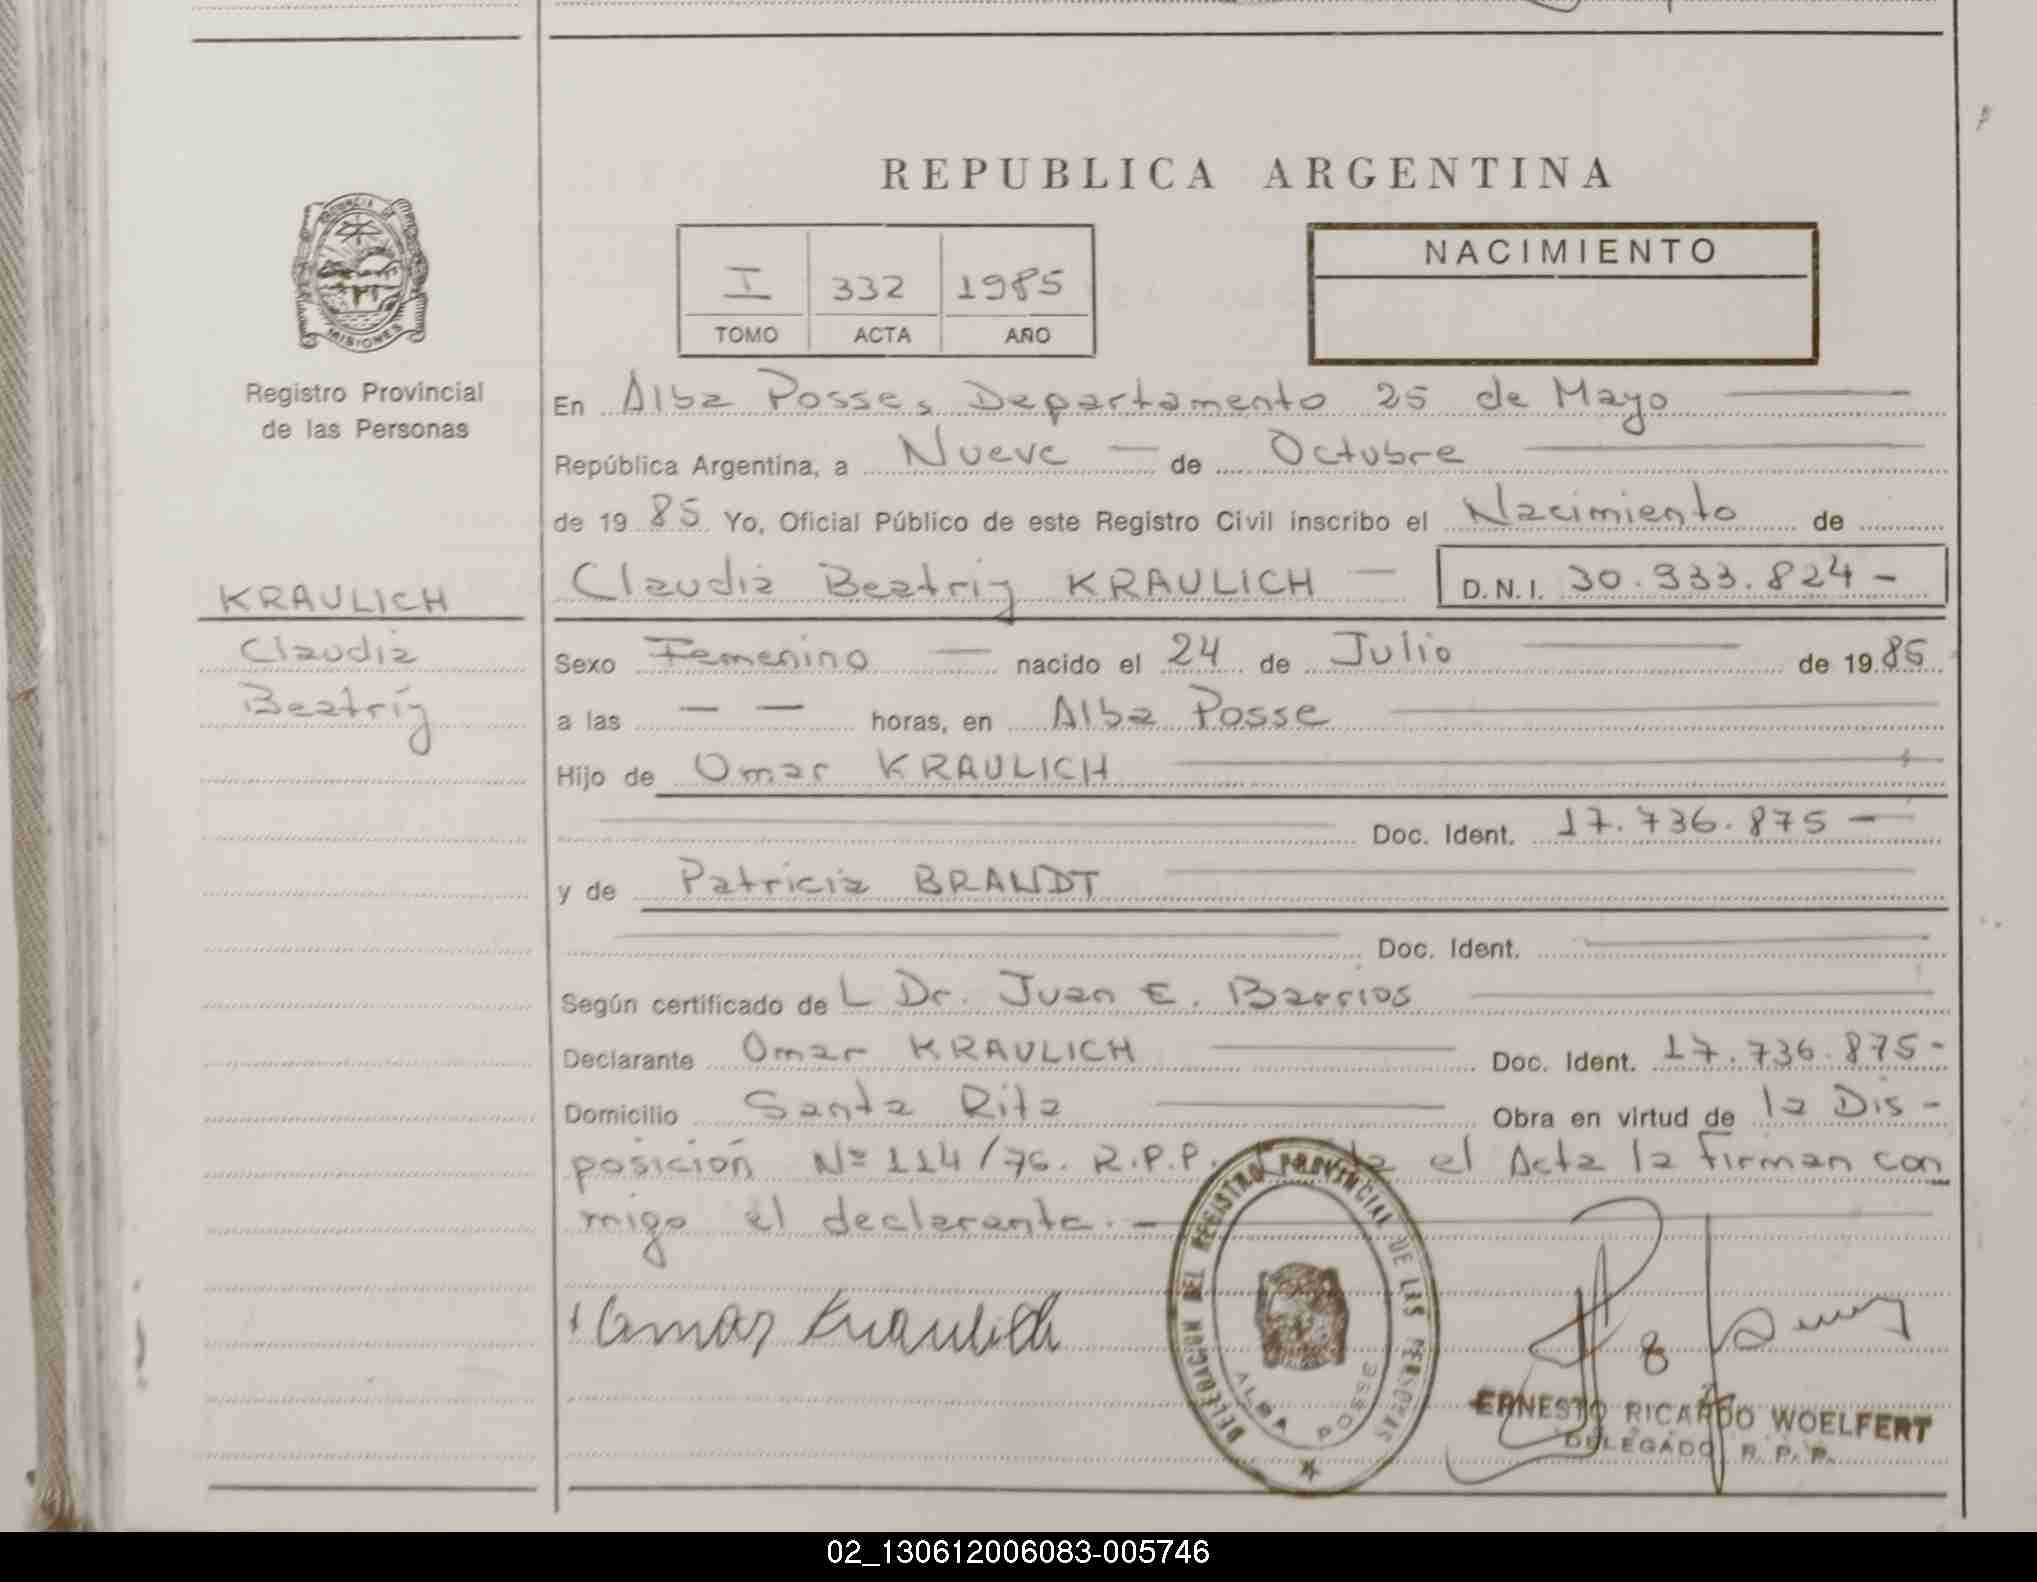 REPUBLICA ARGENTINA
PROVINCIA DE
MISIONES
Registro Provincial
de las Personas
I 332 1985
TOMO ACTA AÑO
NACIMIENTO
En Alba Posse, Departamento 25 de Mayo
República Argentina, a Nueve de Octubre
de 19 85 Yo, Oficial Público de este Registro Civil inscribo el Nacimiento de
KRAULICH
Claudia
Beatriz
Claudia Beatriz KRAULICH D.N.I. 30.933.824-
Sexo Femenino nacido el 24 de Julio de 19 85
a las — — horas, en Alba Posse
Hijo de Omar KRAULICH
Doc. Ident. 17.736.875-
y de Patricia BRANDT
Doc. Ident.
Según certificado de L Dr. Juan E. Barrios
Declarante Omar KRAULICH Doc. Ident. 17.736.875-
Domicilio Santa Rita Obra en virtud de la Dis-
posición Nº 114/76. R.P.P. el Acta la firman con
migo el declarante.-
Omar Kraulich
DELEGACION DEL REGISTRO PROVINCIAL DE LAS PERSONAS
ALBA POSSE
ERNESTO RICARDO WOELFERT
DELEGADO R. P. P.
02_130612006083-005746